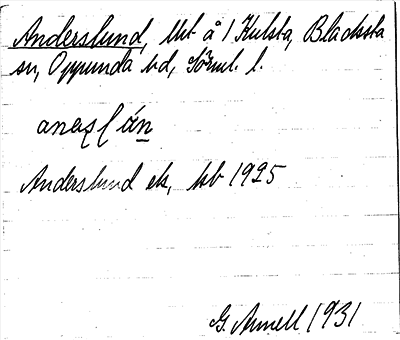 Anderslund, lht å 1 Kulsta, Blacksta
sn, Oppunda hd, Sörml. l.
Anderslund els, kb 1925
G. Annell 1931